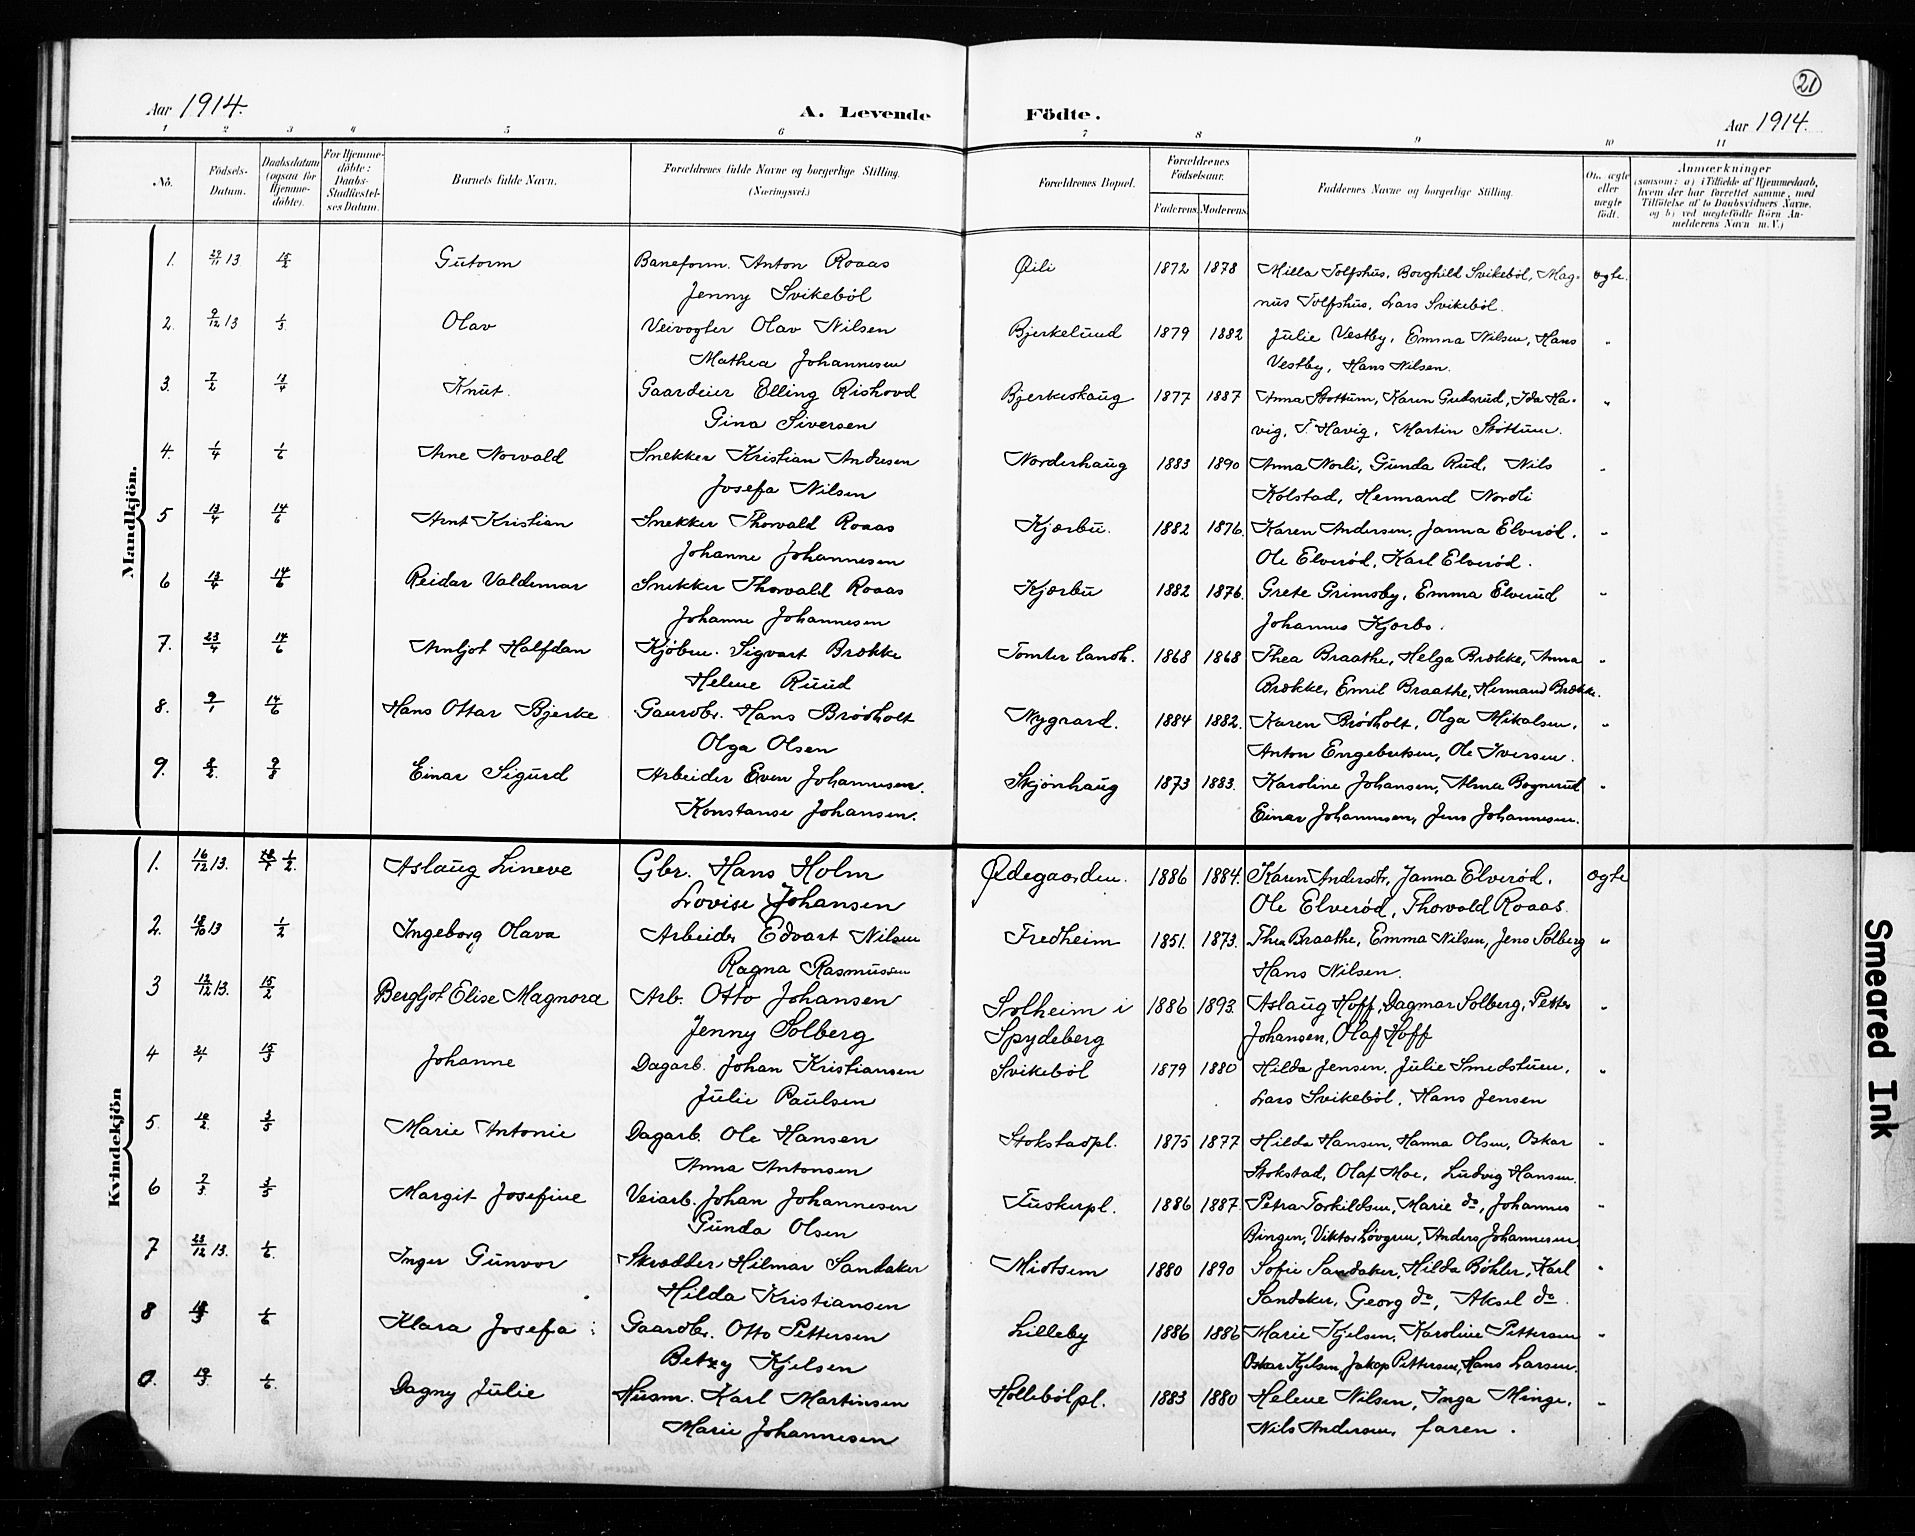 21
Aar 1914. A. Levende Födte. Aar 1914.
1 2 3 4 5 6 7 8 9 10 11
No. Födsels-Datum. Daabsdatum (ogsaa for Hjemmedöbte). For Hjemmedöbte: Daabs-Stadfæstelses Datum. Barnets fulde Navn. Forældrenes fulde Navne og borgerlige Stilling. (Næringsvei.) Forældrenes Bopæl. Forældrenes Födselsaar. Faderens Moderens Faddernes Navne og borgerlige Stilling. Om ægte eller uægte födt. Anmærkninger
(saasom: a) i Tilfælde af Hjemmedaab,
hvem der har forrettet samme, med
Tilföielse af to Daabsvidners Navne,
og b) ved uægtefödte Börn An-
melderens Navn m. V.)
Mandkjön.
1. 29/11 13 15/2 Gutorm Baneform. Anton Roaas Øili 1872 1878 Milla Tolfshus, Borghild Svikeböl, Mag- ægte.
Jenny Svikeböl nus Tolfshus, Lars Svikeböl.
2. 9/12 13 1/3 Olav Veivogter Olav Nilsen Bjerkelund 1879 1882 Julie Vestby, Emma Nilsen, Hans "
Mathea Johannesen Vestby, Hans Nilsen.
3. 7/2 13/4 Knut. Gaardeier Elling Rishovd Bjerkeskaug 1877 1887 Anna Stottum, Karen Gudsrud, Ida Ha- "
Gina Siversen vig, T. Havig, Martin Stöttum.
4. 1/4 1/6 Arne Norvald Snekker Kristian Andresen Norderhaug 1883 1890 Anna Norli, Gunda Rud, Nils "
Josefa Nilsen Kolstad, Hermand Nordli
5 13/4 14/6 Arnt Kristian Snekker Thorvald Roaas Kjærbu. 1882 1876. Karen Andersen, Janna Elveröd. "
Johanne Johannesen Ole Elveröd, Karl Elveröd.
6 13/4 14/6 Reidar Valdemar Snekker Thorvald Roaas Kjærbu 1882 1876. Grete Grimsby, Emma Elverud "
Johanne Johannesen Johannes Kjærbo.
7. 23/4 14/6 Arnljot Halfdan Kjöbm. Sigvart Brække Tomter landh. 1868 1868 Thea Braathe, Helga Brække, Anna "
Helene Ruud Brække, Emil Braathe, Hermand Brække.
8. 9/1 14/6 Hans Ottar Bjerke Gaardbr. Hans Brödholt Nygaard. 1884 1882. Karen Brödholt, Olga Mikalsen, "
Olga Olsen Anton Engebretsen, Ole Iversen.
9. 8/2. 9/8 Einar Sigurd Arbeider Even Johannesen. Skjönhaug 1873 1883. Karoline Johansen, Alma Bognerud "
Konstanse Johansen. Einar Johannesen, Jens Johannesen.
Kvindekjön
1. 16/12 13. 1/2. Aslaug Lineve Gbr. Hans Holm Ødegaarden. 1886 1884. Karen Andersdtr, Janna Elveröd, ægte
Lovise Johansen Ole Elveröd, Thorvald Roaas.
2. 18/10 13 1/2 Ingeborg Olava Arbeider Edvart Nilsen Fredheim 1851. 1873. Thea Braathe, Emma Nilsen, Jens Solberg "
Ragna Rasmussen Hans Nilsen.
3 12/12 13. 15/2 Bergljot Elise Magnora Arb. Otto Johansen Solheim i 1886 1893. Aslaug Hoff, Dagmar Solberg, Petter "
Jenny Solberg Spydeberg Johansen, Olaf Hoff
4 21/1 15/3 Johanne Dagarb. Johan Kristiansen Svikeböl 1879 1880 Hilda Jensen, Julie Smedstuen, "
Julie Paulsen Lars Svikeböl, Hans Jensen
5. 3/5 Marie Antonie Dagarb. Ole Hansen Stokstadpl. 1875 1877 Hilda Hansen, Hanna Olsen, Oskar "
Anna Antonsen Stokstad, Olaf Moe, Ludvig Hansen.
6 7/3 3/5 Margit Josefine Veiarb. Johan Johannesen Tuskerpl. 1886 1887. Petra Torkildsen, Marie do, Johannes "
Gunda Olsen Bingen, Viktor Lövgren, Anders Johannesen.
7 23/12 13. 1/6. Inger Gunvor Skrædder Hilmar Sandaker Miotsem 1880 1890 Sofie Sandaker, Hilda Böhler, Karl "
Hilda Kristiansen Sandaker, Georg do, Aksel do.
8 1/6 Klara Josefa Gaardbr. Otto Pettersen Lilleby 1886 1886 Marie Kjelsen, Karoline Pettersen "
Betzy Kjelsen Oskar Kjelsen, Jakop Pettersen, Hans Larsen.
9. 19/3. 1/6. Dagny Julie Husm. Karl Martinsen Holleböl pl. 1883 1880 Helene Nilsen, Inga Minge, "
Marie Johannesen Nils Andersen, faren.
Smeared Ink